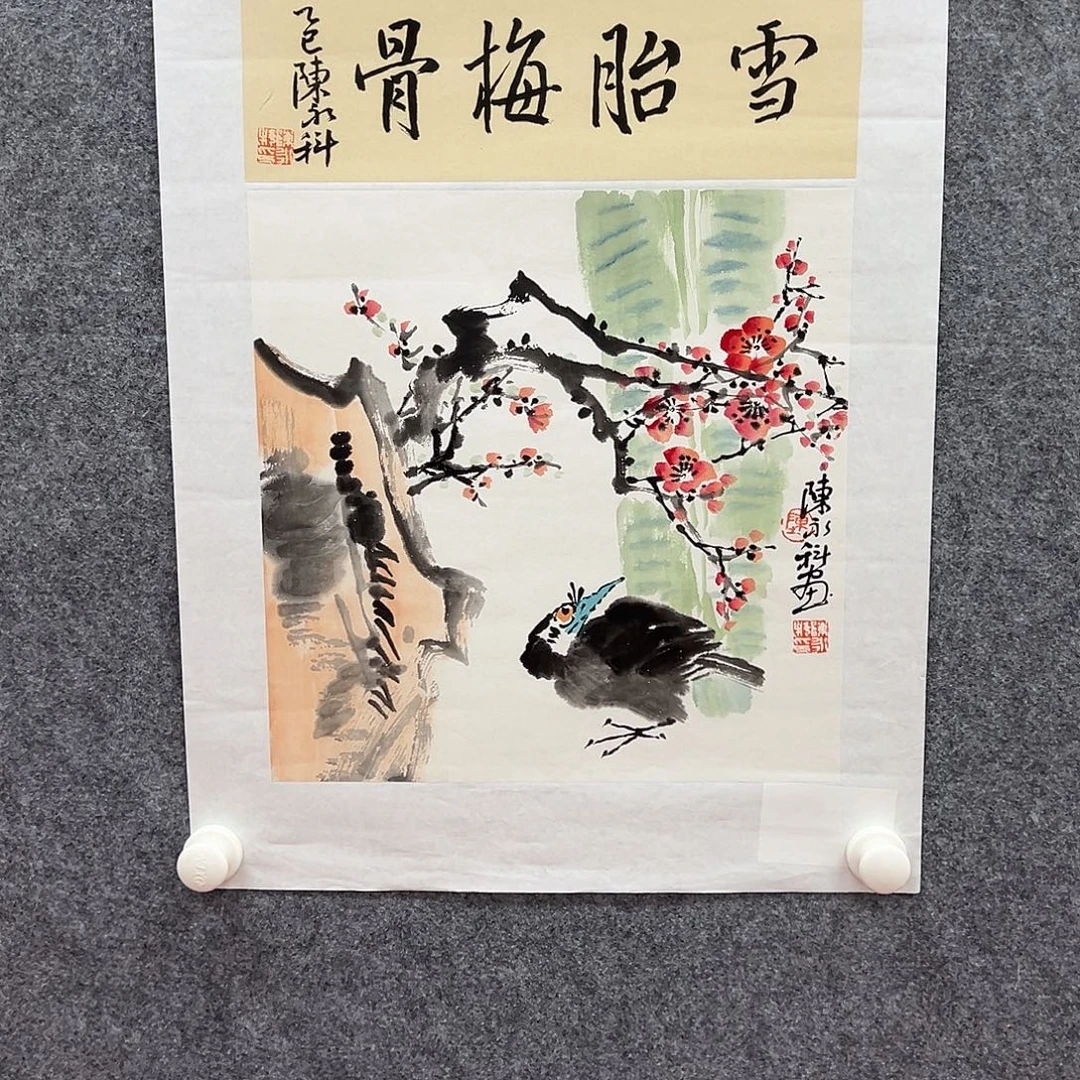 雪胎梅骨
乙巳陳永科
陳永科畫